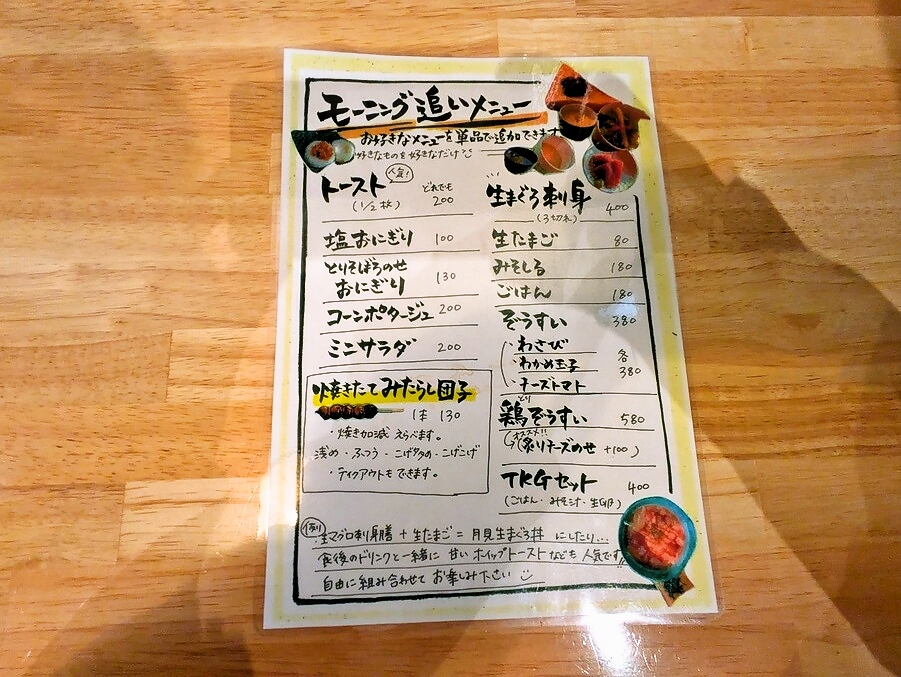 モーニング追いメニュー
お好きなメニューを単品で追加できます
好きなものを好きなだけ
トースト 人気!
(1/2枚) どれでも 200
塩おにぎり 100
とりそぼろのせ
おにぎり 130
コーンポタージュ 200
ミニサラダ 200
焼きたてみたらし団子
1本 130
・焼き加減 えらべます。
浅め・ふつう・こげ多め・こげこげ
・テイクアウトもできます。
生まぐろ刺身 400
(3切れ)
生たまご 80
みそしる 180
ごはん 180
ぞうすい 380
わさび
わかめ玉子 各380
チーズトマト
鶏ぞうすい 580
とり
オススメ!!
(炙りチーズのせ +100)
TKGセット 400
(ごはん・みそ汁・生卵)
例
生マグロ刺身膳 + 生たまご = 月見生まぐろ丼 にしたり...
食後のドリンクと一緒に 甘い ホイップトーストなども 人気です!!
自由に組み合わせて お楽しみ下さい